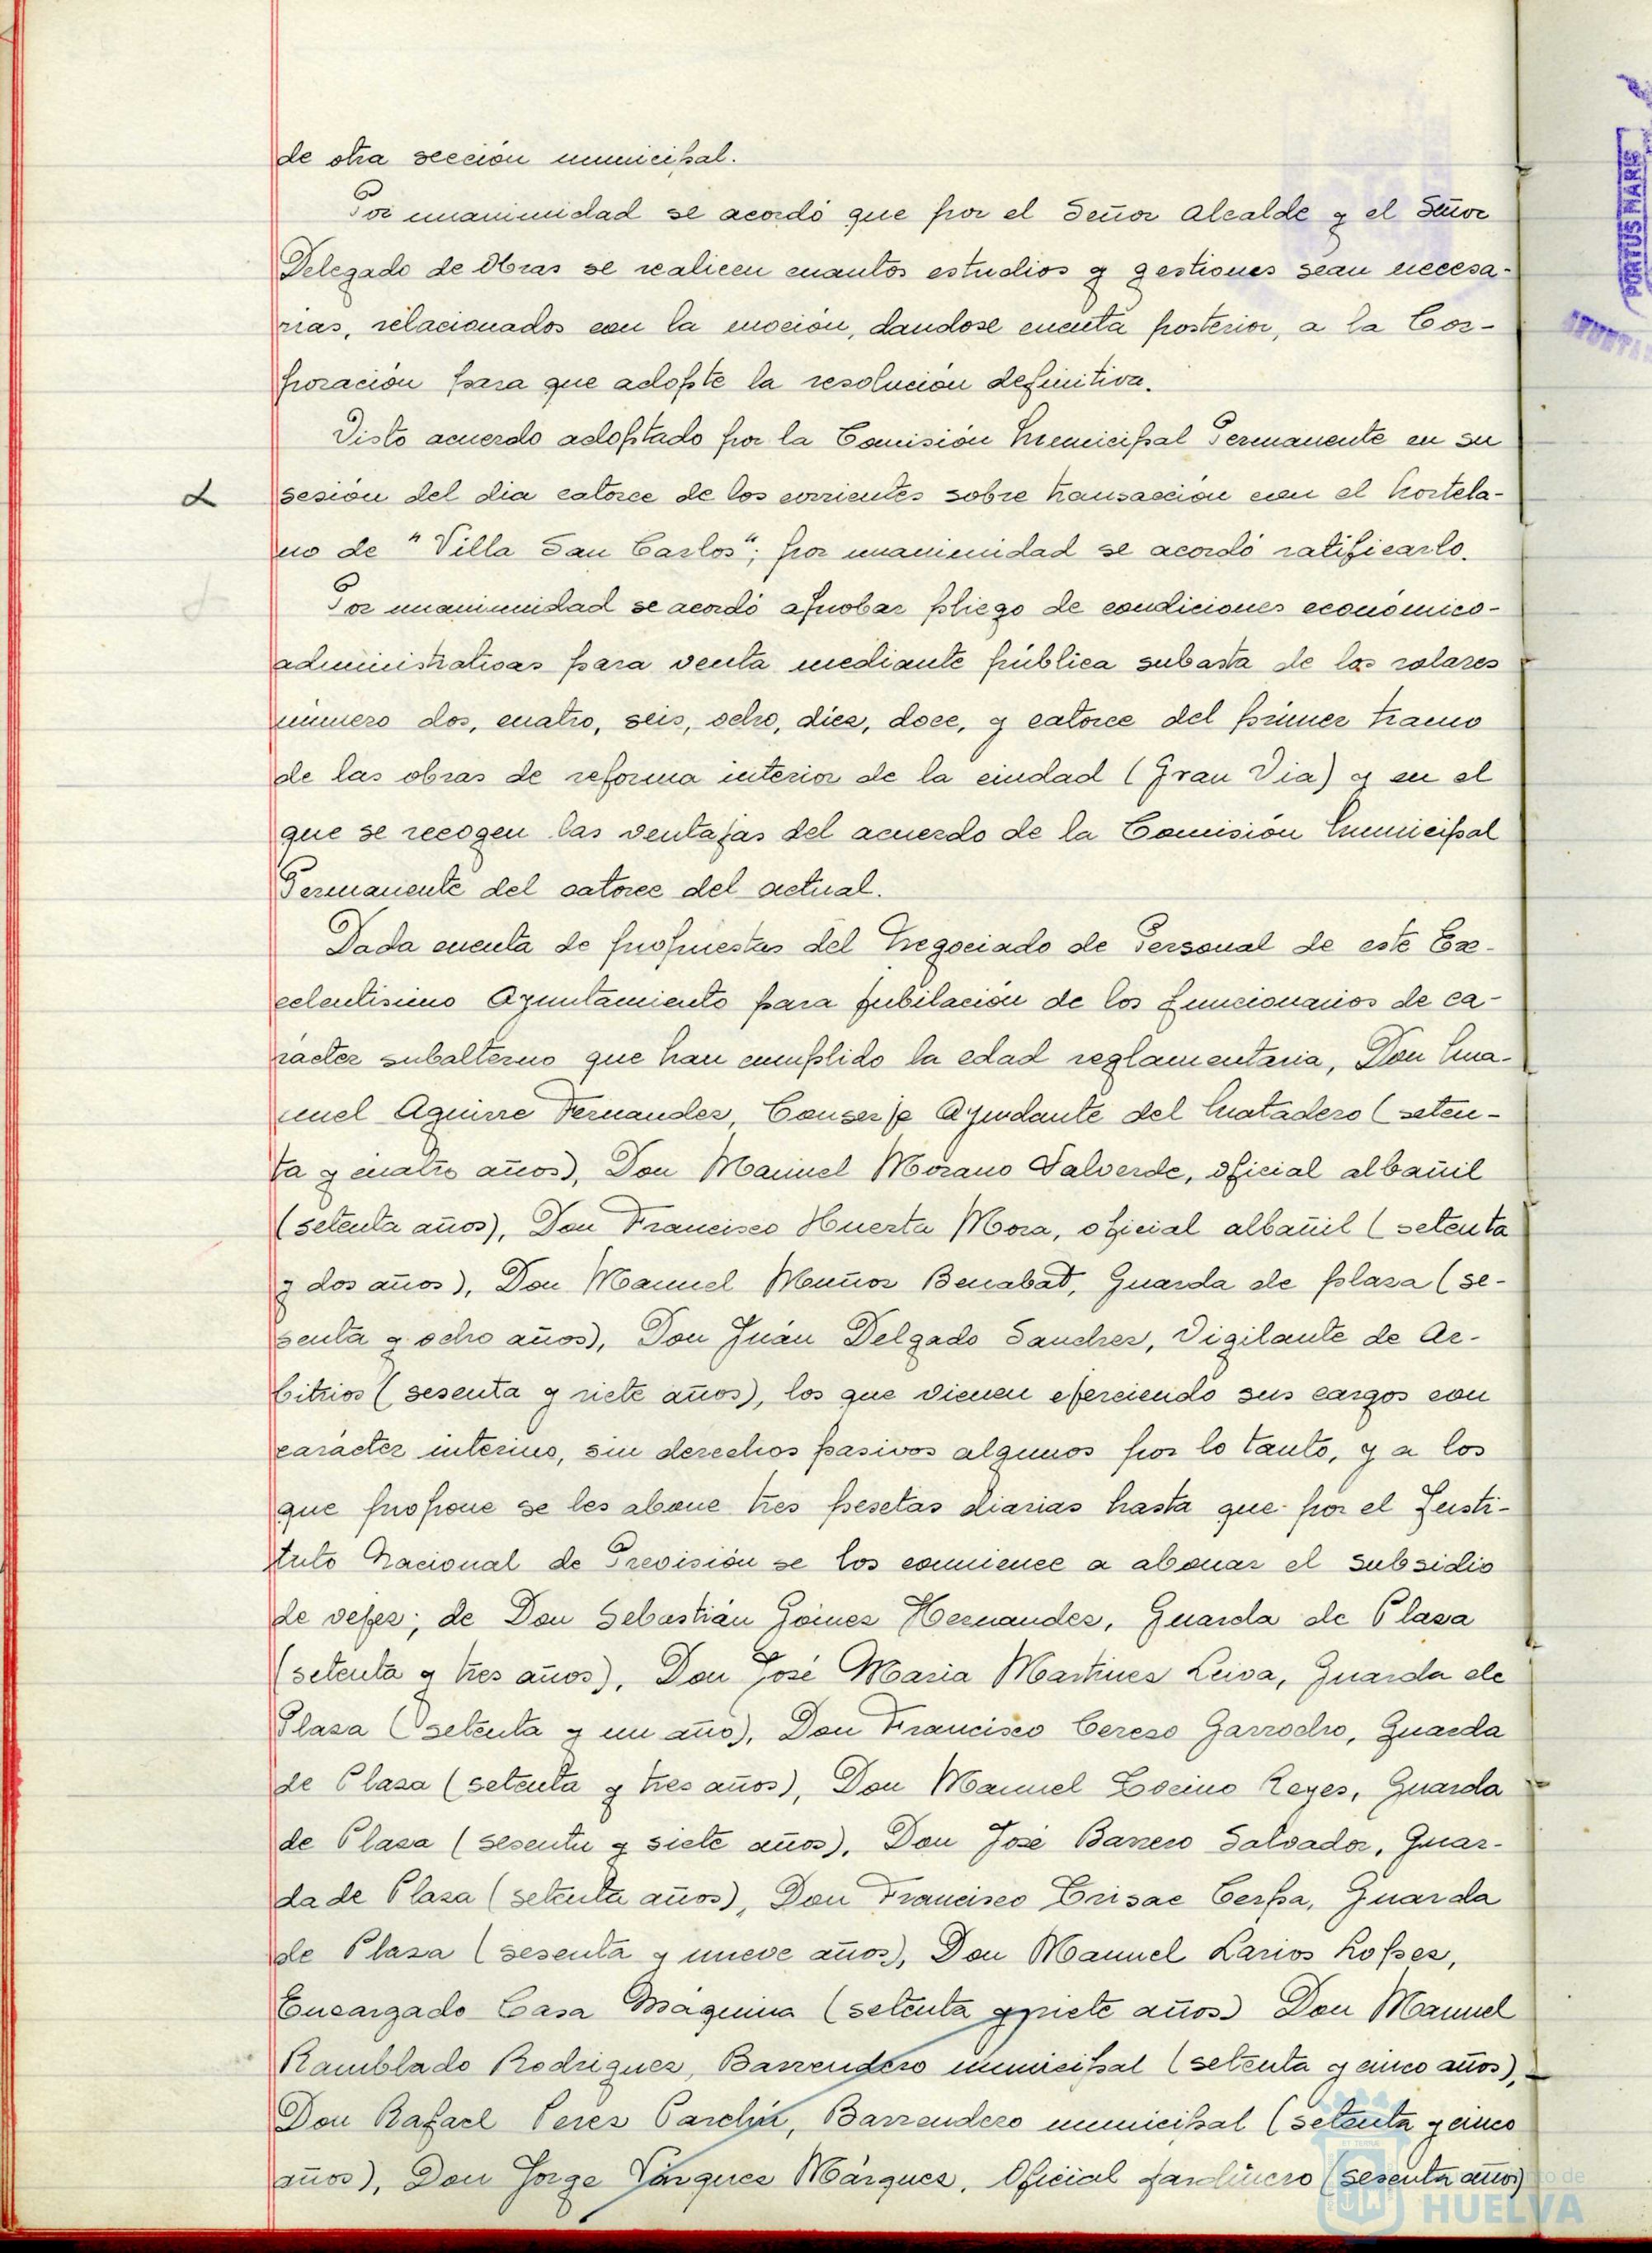 de otra sección municipal.
Por unanimidad se acordó que por el Señor Alcalde y el Señor
Delegado de Obras se realicen cuantos estudios y gestiones sean necesa-
rias, relacionados con la moción, dandose cuenta posterior, a la Cor-
poración para que adopte la resolución definitiva.
Visto acuerdo adoptado por la Comisión Municipal Permanente en su
sesión del dia catorce de los corrientes sobre transacción con el hortela-
no de "Villa San Carlos"; por unanimidad se acordó ratificarlo.
Por unanimidad se acordó aprobar pliego de condiciones económico-
administrativas para venta mediante pública subasta de los solares
número dos, cuatro, seis, ocho, diez, doce, y catorce del primer tramo
de las obras de reforma interior de la ciudad (Gran Via) y en el
que se recogen las ventajas del acuerdo de la Comisión Municipal
Permanente del catorce del actual.
Dada cuenta de propuestas del Negociado de Personal de este Ex-
celentisimo Ayuntamiento para jubilación de los funcionarios de ca-
rácter subalterno que han cumplido la edad reglamentaria, Don Ma-
nuel Aguirre Fernandez, Conserje Ayudante del Matadero (seten-
ta y cuatro años), Don Manuel Morano Valverde, oficial albañil
(setenta años), Don Francisco Huerta Mora, oficial albañil (setenta
y dos años), Don Manuel Muñoz Benabat, Guarda de plaza (se-
senta y ocho años), Don Juán Delgado Sanchez, Vigilante de Ar-
bitrios (sesenta y siete años), los que vienen ejerciendo sus cargos con
carácter interino, sin derechos pasivos algunos por lo tanto, y a los
que propone se les abone tres pesetas diarias hasta que por el Insti-
tuto Nacional de Previsión se los comience a abonar el subsidio
de vejez; de Don Sebastián Goimez Hernandez, Guarda de Plaza
(setenta y tres años), Don José Maria Martinez Leiva, Guarda de
Plaza (setenta y un año), Don Francisco Cerezo Garrocho, Guarda
de Plaza (setenta y tres años), Don Manuel Cocino Reyes, Guarda
de Plaza (sesenta y siete años), Don José Barrero Salvador, Guar-
da de Plaza (setenta años), Don Francisco Crisac Cerpa, Guarda
de Plaza (sesenta y nueve años), Don Manuel Larios Lopez,
Encargado Casa Máquina (setenta y siete años) Don Manuel
Ramblado Rodriguez, Barrendero municipal (setenta y cinco años),
Don Rafael Perez Parchin, Barrendero municipal (setenta y cinco
años), Don Jorge Vázquez Márquez, Oficial jardinero (sesenta años)
PORTUS MARIS
HUELVA